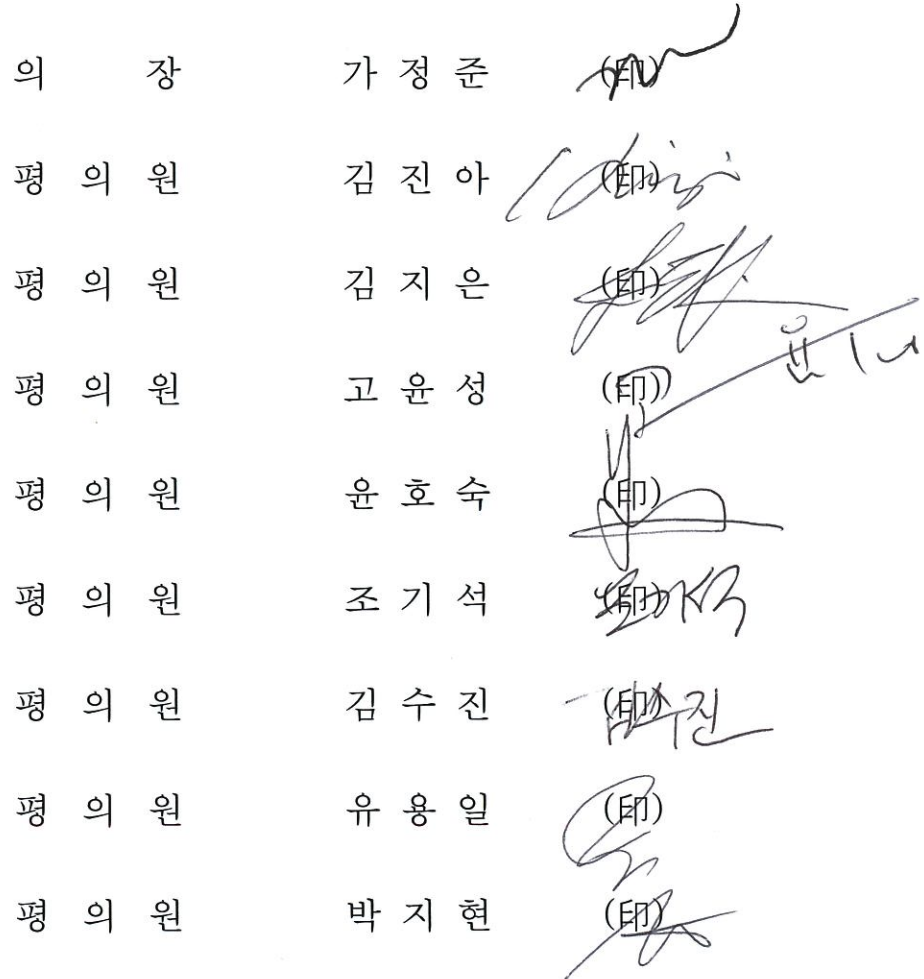 의 장 가 정 준 (印)
평 의 원 김 진 아 (印)
평 의 원 김 지 은 (印)
평 의 원 고 윤 성 (印)
평 의 원 윤 호 숙 (印)
평 의 원 조 기 석 (印) 조기석
평 의 원 김 수 진 (印) 김수진
평 의 원 유 용 일 (印)
평 의 원 박 지 현 (印)